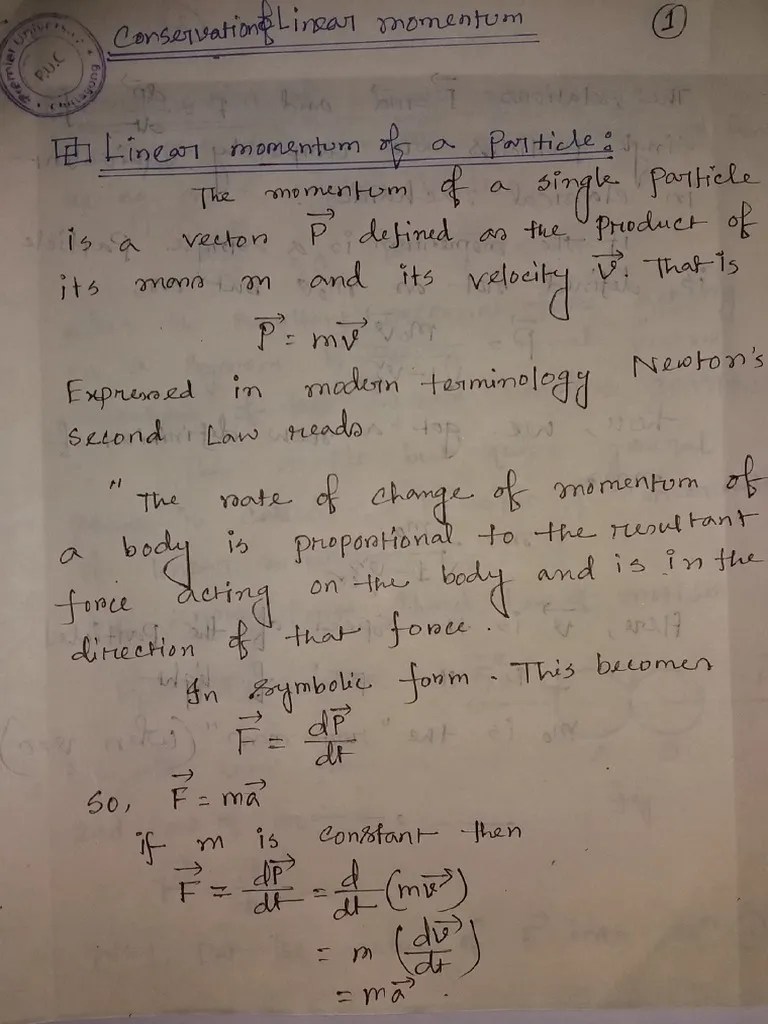 Conservation of Linear momentum
①
Premier University
P.U.C
Linear momentum of a Particle:
The momentum of a single Particle
is a vector P⃗ defined as the Product of
its mass m and its velocity v⃗. That is
P⃗ = mv⃗
Expressed in modern terminology Newton's
Second Law reads
" The rate of change of momentum of
a body is proportional to the resultant
force acting on the body and is in the
direction of that force.
In symbolic form. This becomes
F⃗ = dP⃗/dt
So, F⃗ = ma⃗
if m is constant then
F⃗ = dP⃗/dt = d/dt (mv⃗)
= m (dv⃗/dt)
= ma⃗.